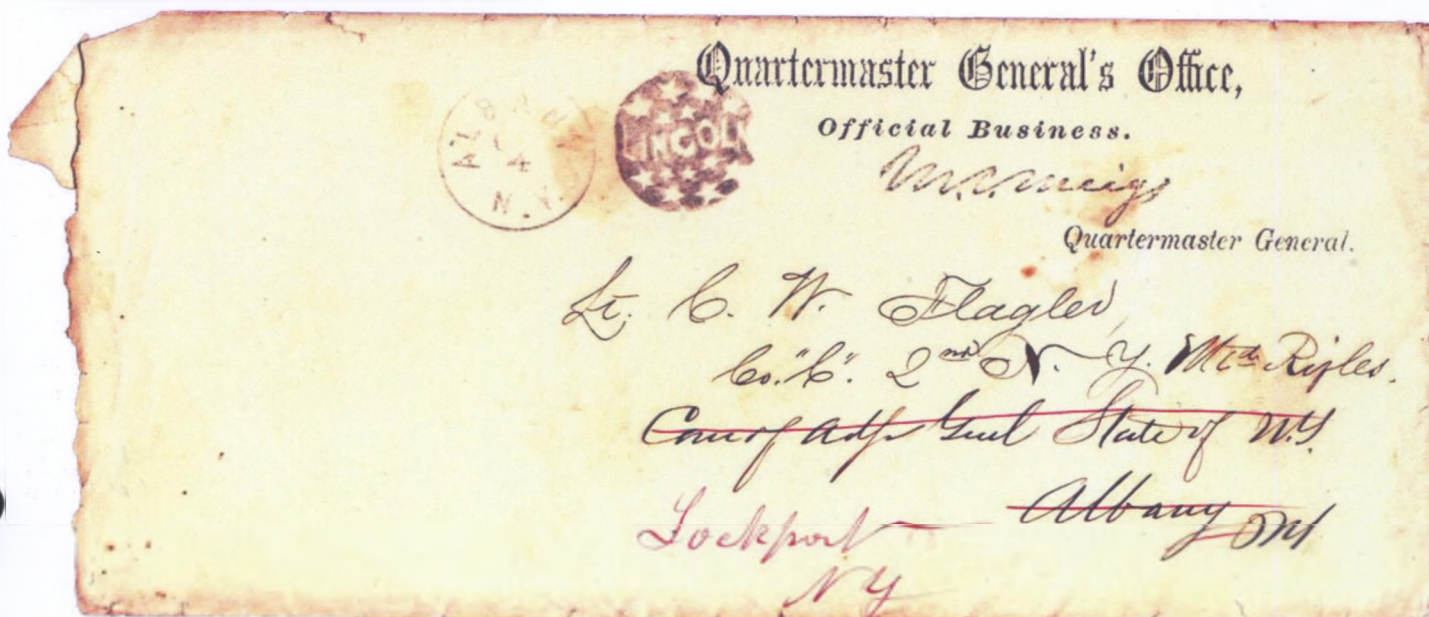 Quartermaster General's Office,
Official Business.
M. C. Meigs
Quartermaster General.
ALBANY
4
N.Y.
LINCOLN
Lt. C. W. Flagler
Co. "C". 2nd N. Y. Mtd Rifles.
Care of Adjt Genl State of N.Y.
Albany NY
Lockport
NY